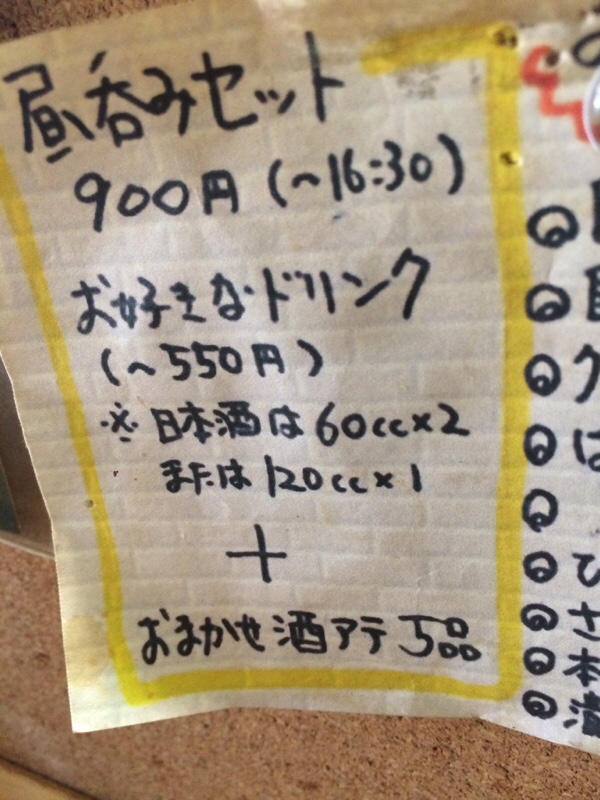 昼呑みセット
900円(~16:30)
お好きなドリンク
(~550円)
※日本酒は60cc×2
または120cc×1
+
おまかせ酒アテ5品